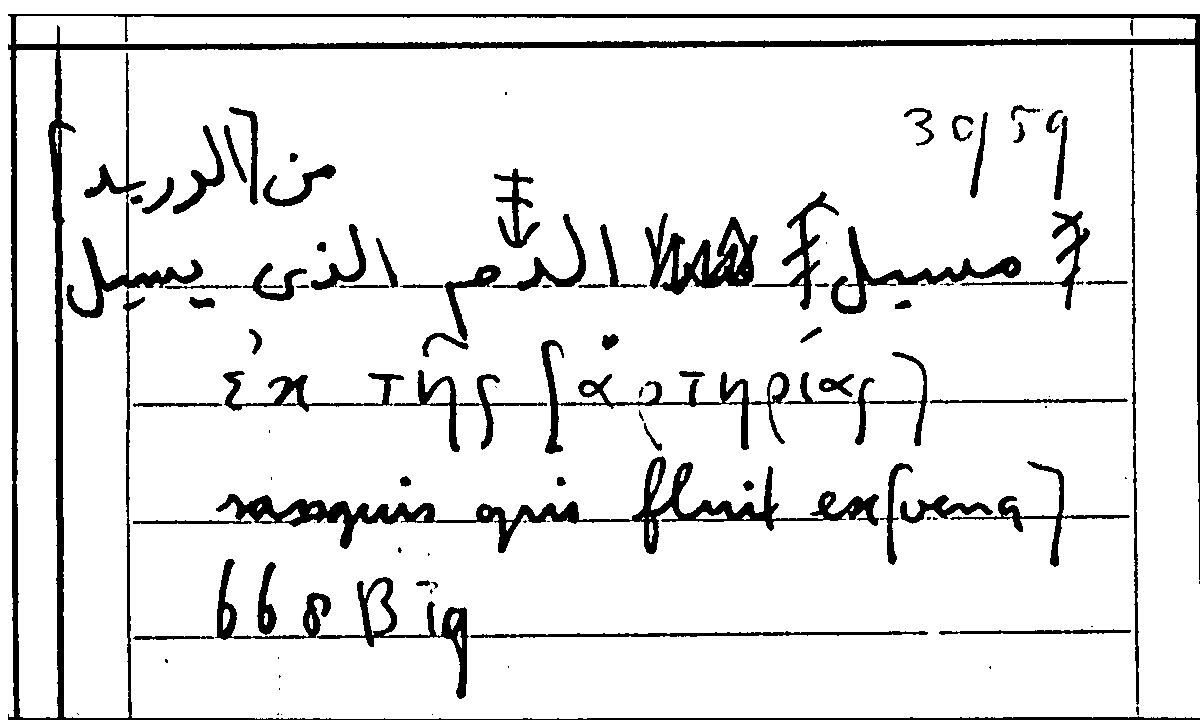 3059
من [الوريد]
مسيل الدم الذى يسيل
ἐκ τῆς [ἀρτηρίας]
sanguis qui fluit ex [vena]
668 B 19